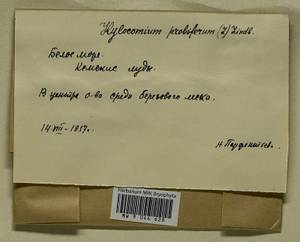 Hylocomium proliferum (L) Lindb.
Белое море.
Кемские луды.
В центре о-ва среди березового леса.
14 VII - 1957г.
Н. Парфентьева.
Herbarium MW, Bryophyta
MW 9 044 628